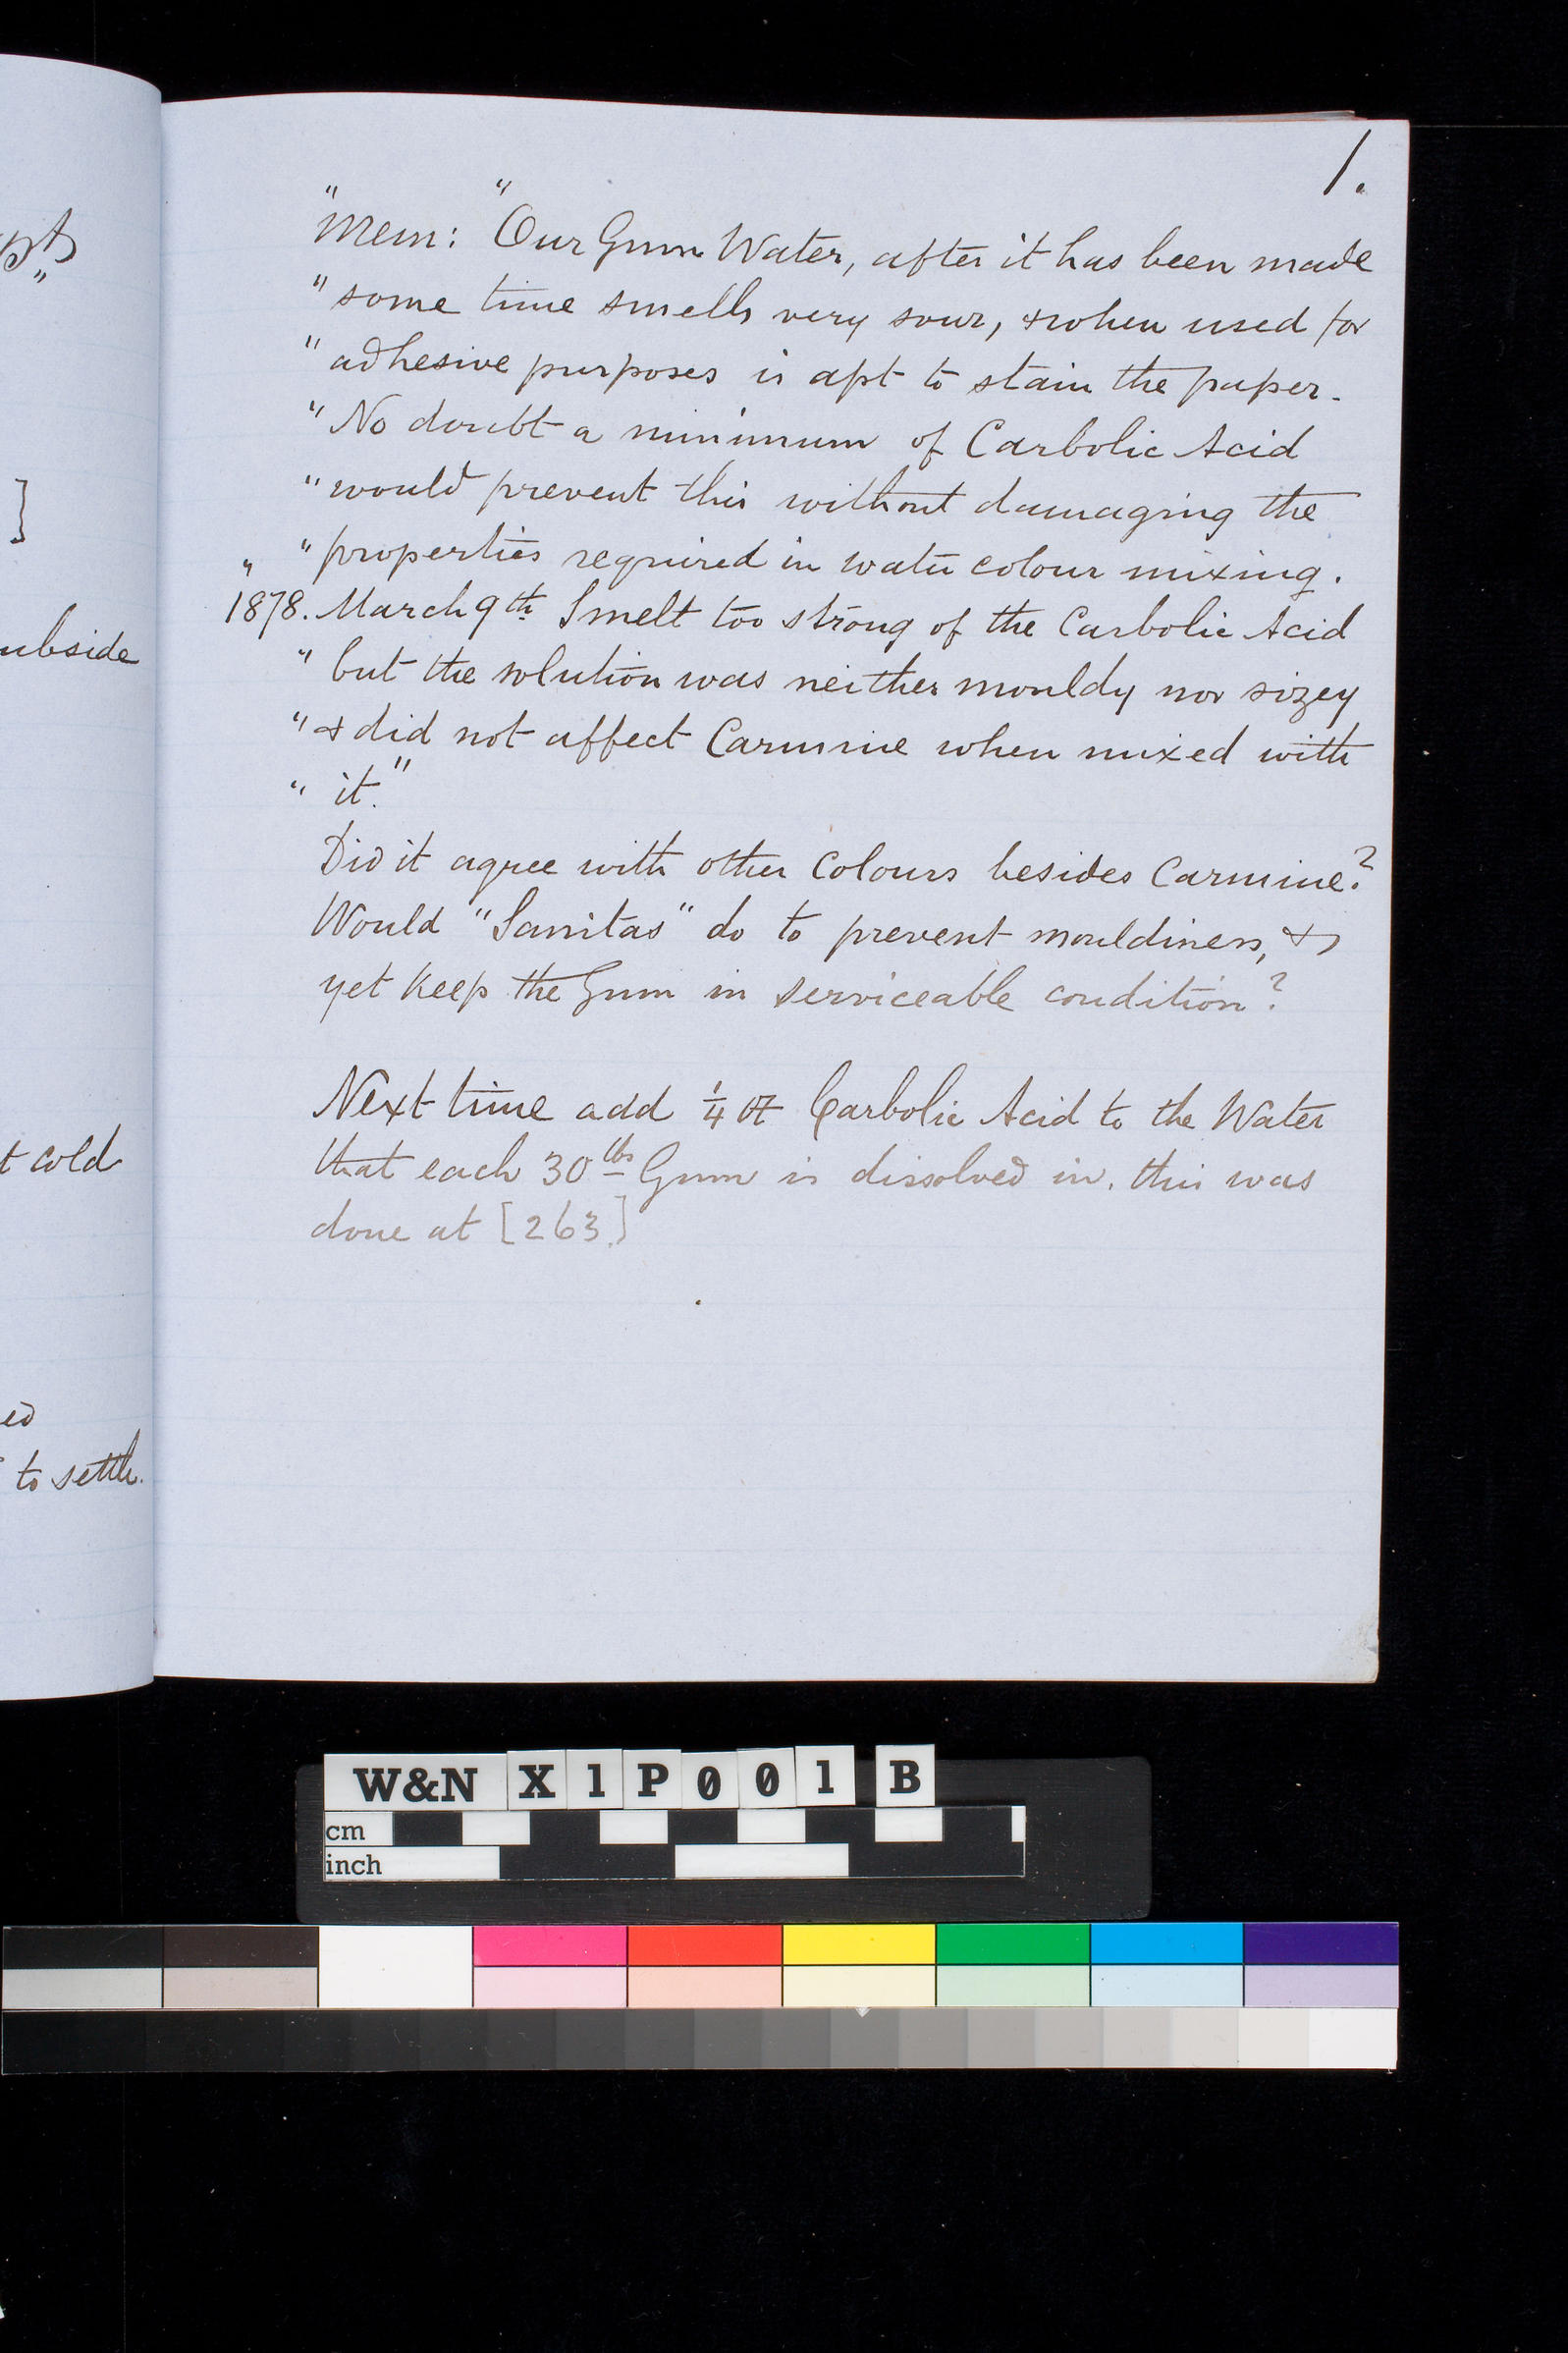 1.
"Mem: "Our Gum Water, after it has been made
"some time smells very sour, & when used for
"adhesive purposes is apt to stain the paper.
"No doubt a minimum of Carbolic Acid
"would prevent this without damaging the
"properties required in water colour mixing.
"1878. March 9th Smelt too strong of the Carbolic Acid
"but the solution was neither mouldy nor sizey
"& did not affect Carmine when mixed with
"it."
Did it agree with other Colours besides Carmine?
Would "Sanitas" do to prevent mouldiness, &
yet keep the Gum in serviceable condition?
Next time add 1/4 oz Carbolic Acid to the Water
that each 30 lbs Gum is dissolved in. this was
done at [263]
]
ubside
t cold
ed
to settle.
W&N X1P001 B
cm
inch